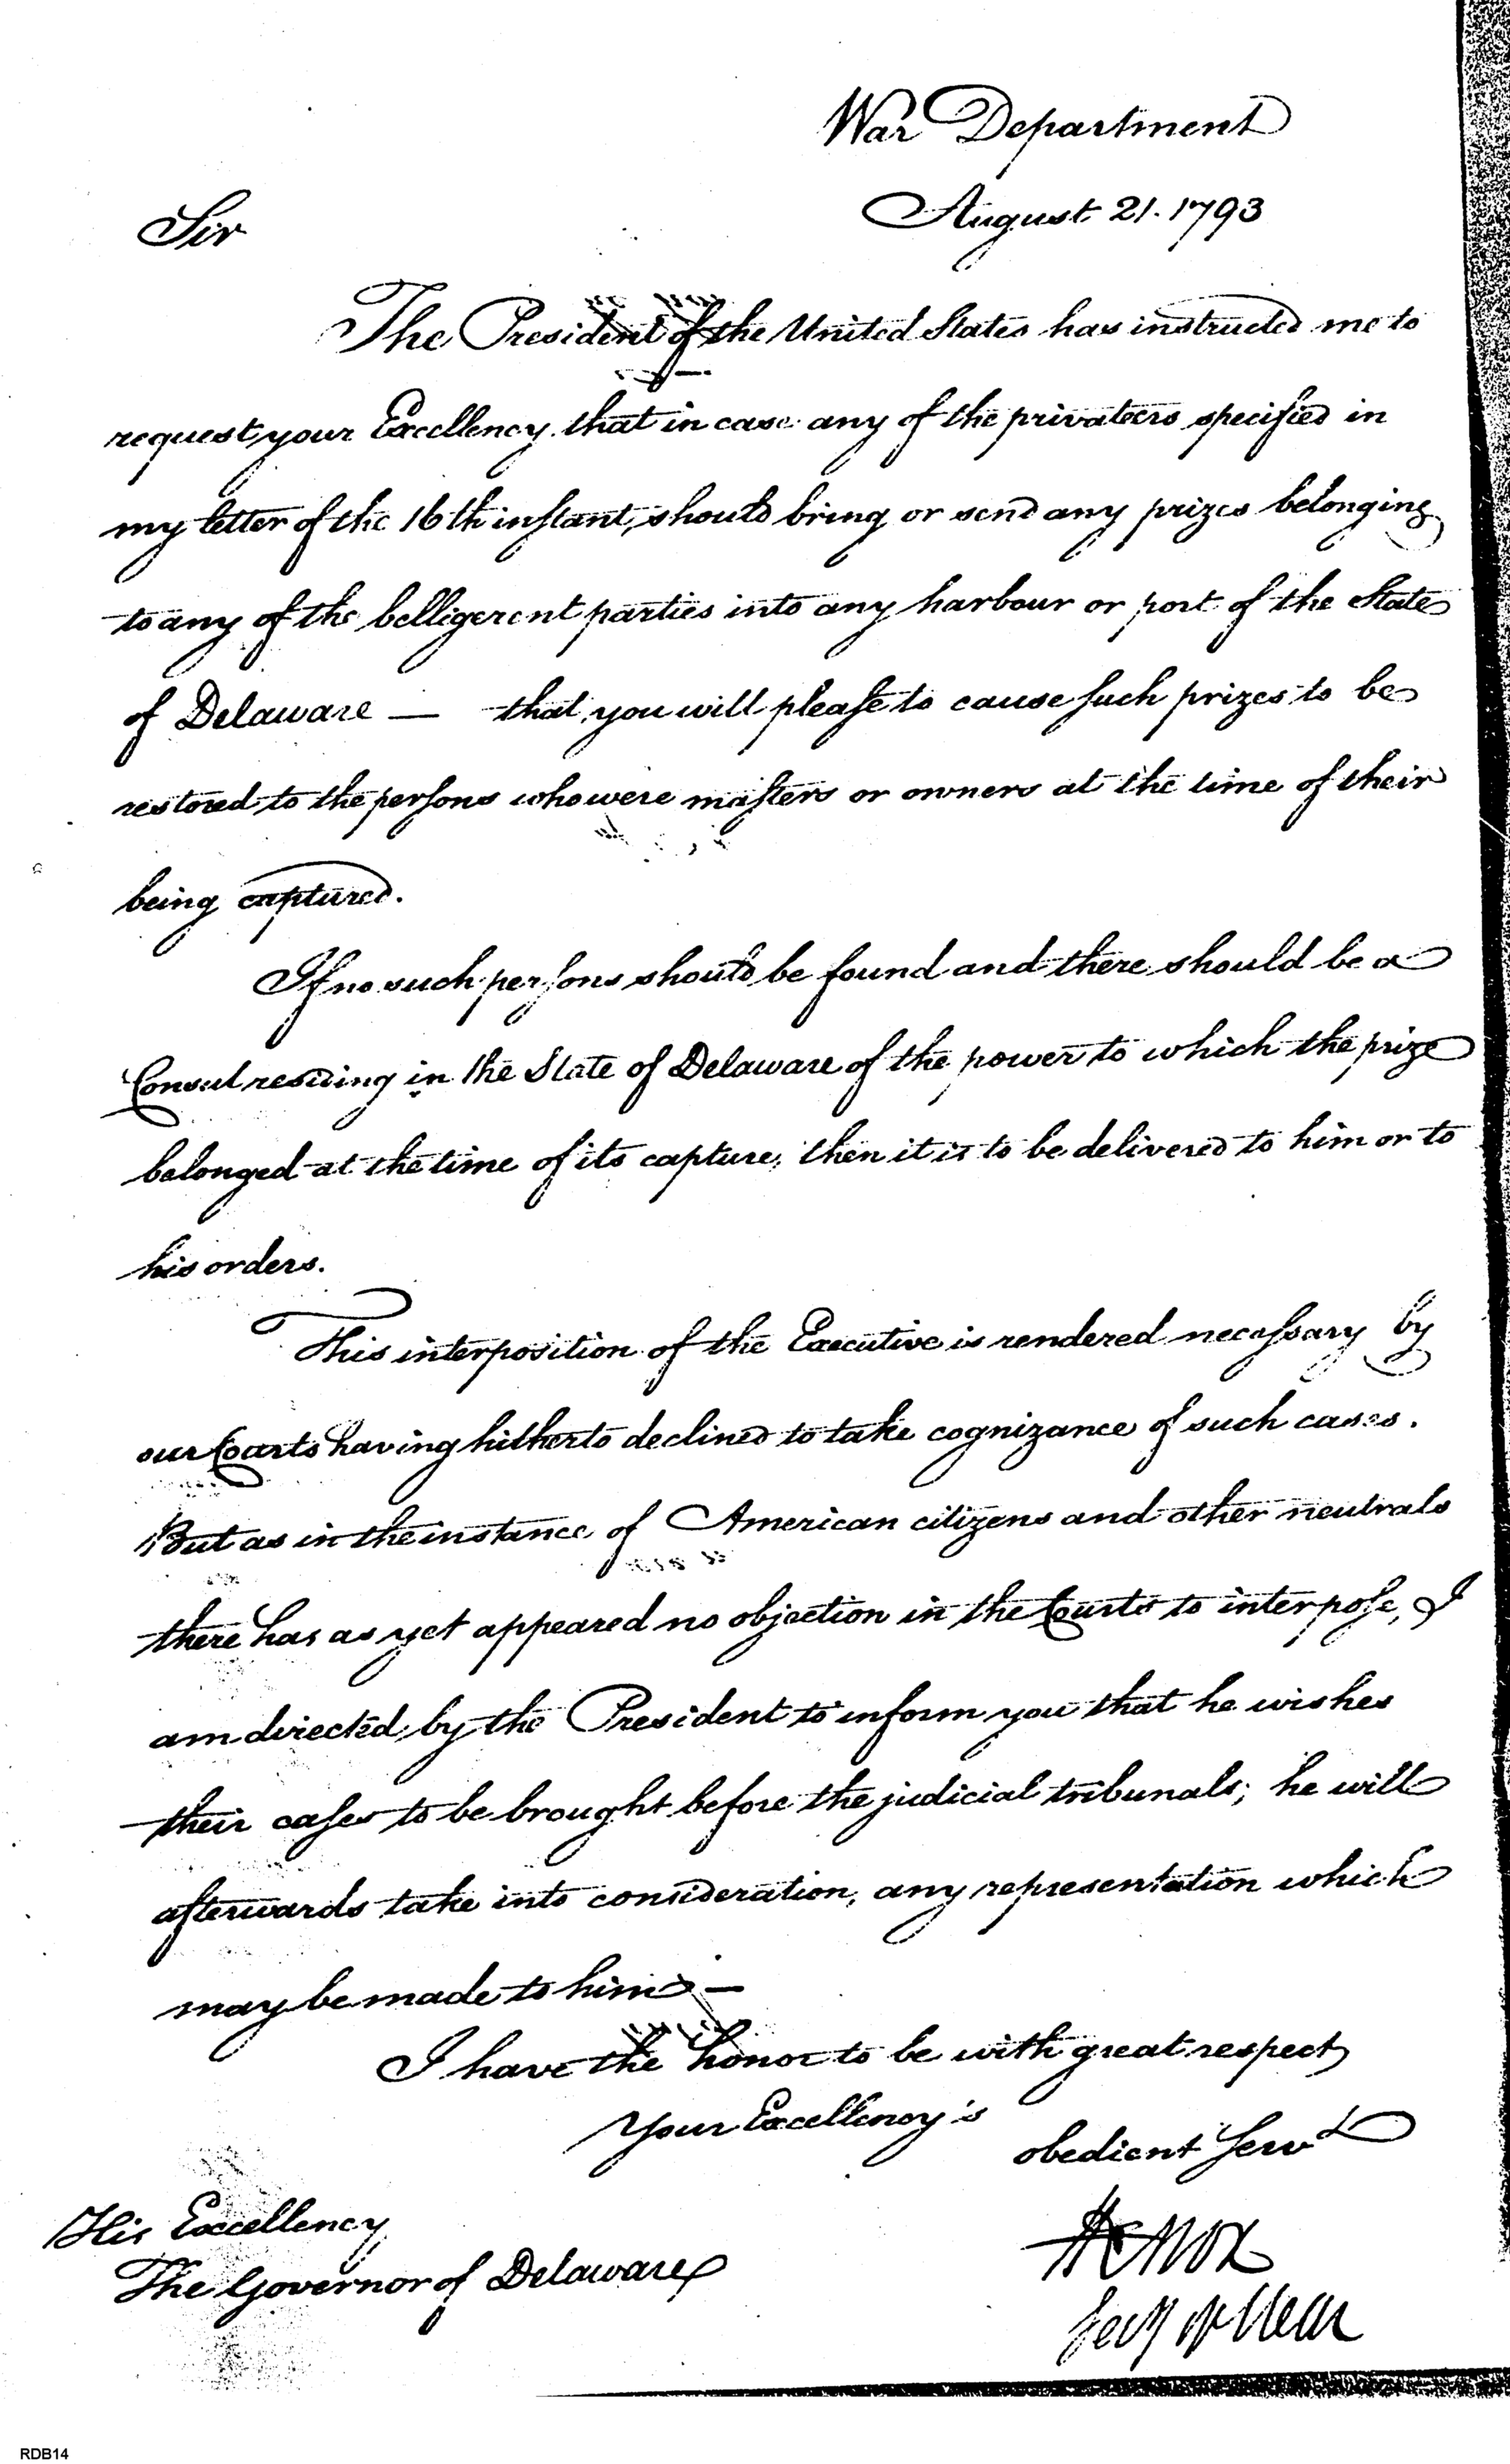 War Department
August 21. 1793
Sir
The President of the United States has instructed me to
request your Excellency that in case any of the privateers specified in
my letter of the 16th instant, should bring or send any prizes belonging
to any of the belligerent parties into any harbour or port of the State
of Delaware — that you will please to cause such prizes to be
restored to the persons who were masters or owners at the time of their
being captured.
If no such persons should be found and there should be a
Consul residing in the State of Delaware of the power to which the prize
belonged at the time of its capture, then it is to be delivered to him or to
his orders.
This interposition of the Executive is rendered necessary by
our Courts having hitherto declined to take cognizance of such cases.
But as in the instance of American citizens and other neutrals
there has as yet appeared no objection in the Courts to interpose, I
am directed by the President to inform you that he wishes
their cases to be brought before the judicial tribunals; he will
afterwards take into consideration, any representation which
may be made to him —
I have the honor to be with great respect
Your Excellency's
obedient Servt
HKnox
Secy of War
His Excellency
The Governor of Delaware
RDB14